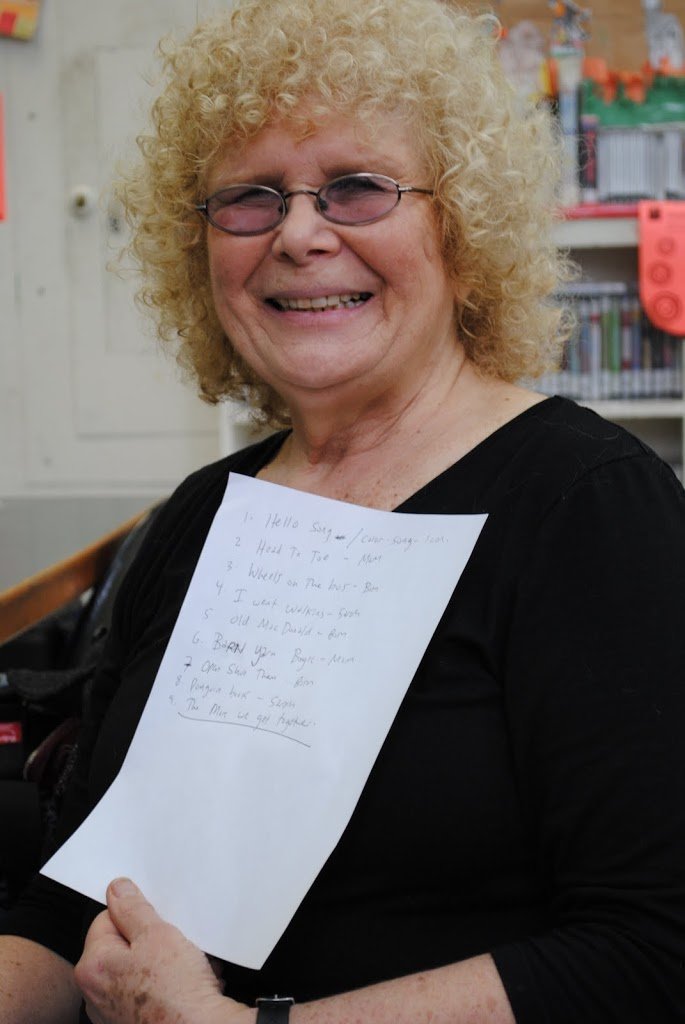 1. Hello Song / Color song - Sam
2 Head To Toe - Mom
3 Wheels on The bus - Bim
4 I went Walking - Sarah
5 Old MacDonald - Bim
6. BARN Yarn Bagie - Mom
7 Open Shut Them Bim
8. Penguin book - Sarah
9. The More we get together.